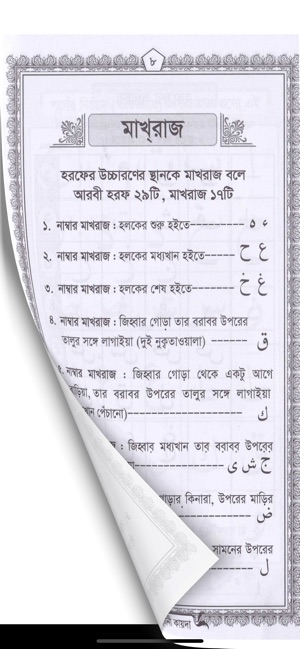 ৮
মাখ্‌রাজ
হরফের উচ্চারণের স্থানকে মাখরাজ বলে
আরবী হরফ ২৯টি, মাখরাজ ১৭টি
১. নাম্বার মাখরাজ : হলকের শুরু হইতে--------- ء ه
২. নাম্বার মাখরাজ : হলকের মধ্যখান হইতে----- ع ح
৩. নাম্বার মাখরাজ : হলকের শেষ হইতে-------- غ خ
৪. নাম্বার মাখরাজ : জিহ্বার গোড়া তার বরাবর উপরের
তালুর সঙ্গে লাগাইয়া (দুই নুক্‌তাওয়ালা) ------ ق
নাম্বার মাখরাজ : জিহ্বার গোড়া থেকে একটু আগে
বাড়িয়া, তার বরাবর উপরের তালুর সঙ্গে লাগাইয়া
পেঁচানো)--------------------- ك
: জিহ্বার মধ্যখান তার বরাবর উপরের
---------------- ج ش ى
গোড়ার কিনারা, উপরের মাড়ির
------------- ض
সামনের উপরের
-------- ل
কায়দা